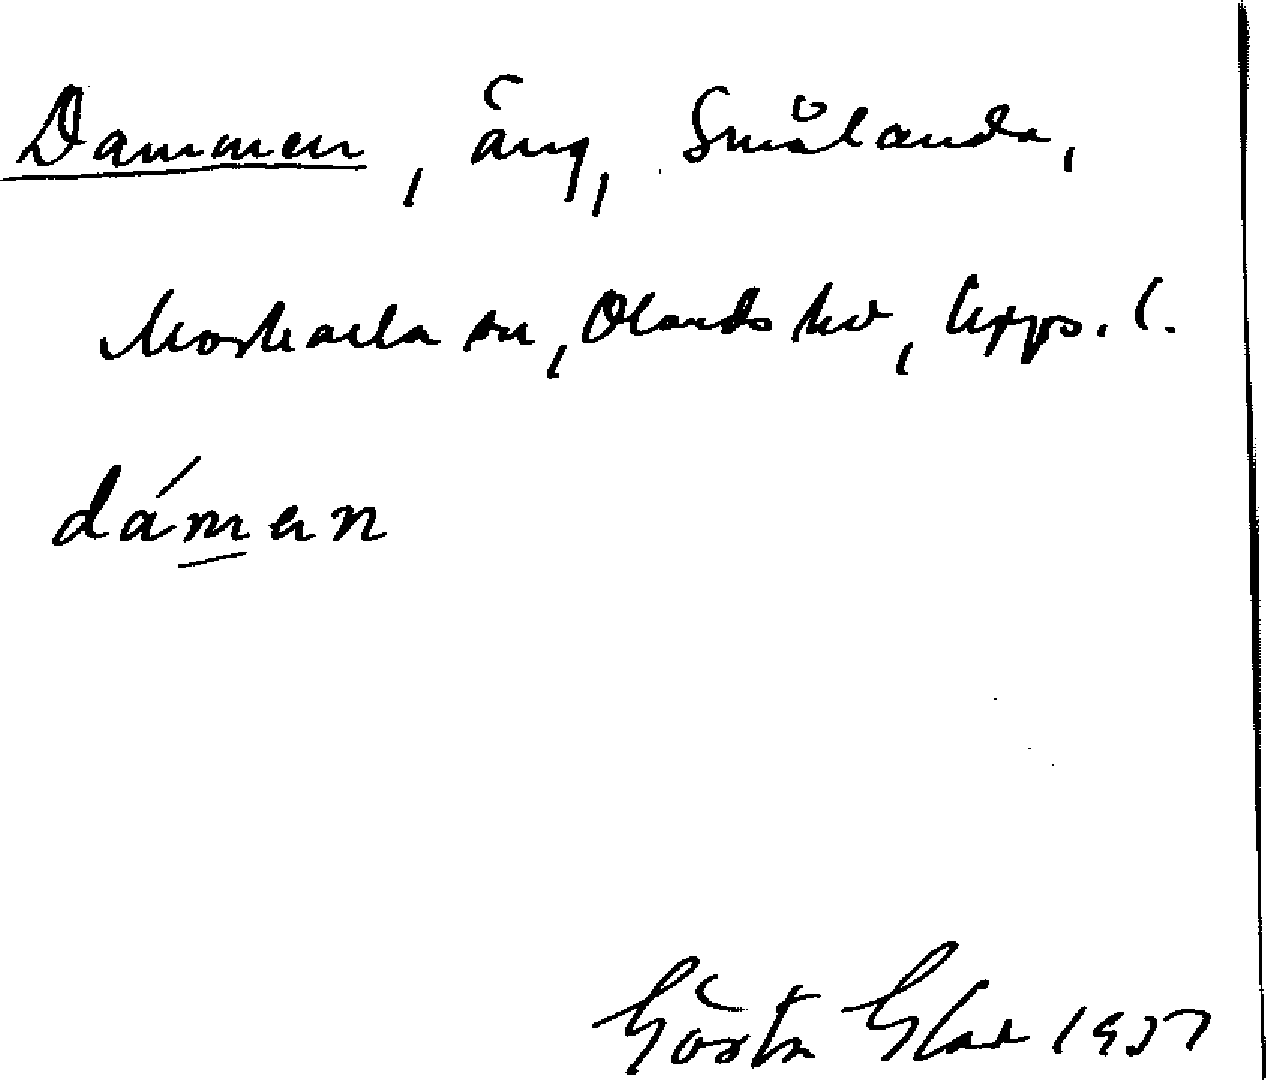 Dammen, äng, Smålanda,
Morkarla sn, Olands hd, Upps. l.
dámen
Gösta Glad 1937